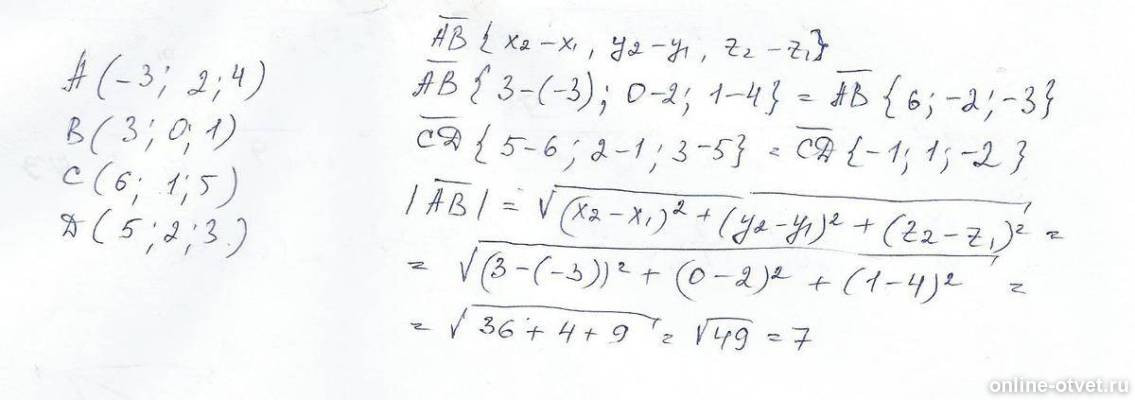 A (-3; 2; 4)
B (3; 0; 1)
C (6; 1; 5)
D (5; 2; 3)
AB̅ { x₂-x₁, y₂-y₁, z₂-z₁}
AB̅ { 3-(-3); 0-2; 1-4} = AB̅ {6; -2; -3}
CD̅ { 5-6; 2-1; 3-5} = CD̅ {-1; 1; -2}
|AB̅| = √(x₂-x₁)² + (y₂-y₁)² + (z₂-z₁)² =
= √(3-(-3))² + (0-2)² + (1-4)² =
= √36 + 4 + 9 = √49 = 7
online-otvet.ru